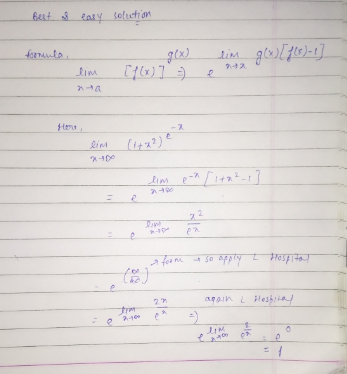 Best & easy solution
formula,
lim x→a [f(x)]^g(x) ⇒ e^lim x→a g(x)[f(x)-1]
Here,
lim x→∞ (1+x²)^e^-x
= e^lim x→∞ e^-x [1+x²-1]
= e^lim x→∞ x²/e^x
= e^(∞/∞) → form → so apply L Hospital
= e^lim x→∞ 2x/e^x again L Hospital
⇒ e^lim x→∞ 2/e^x = e^0
= 1